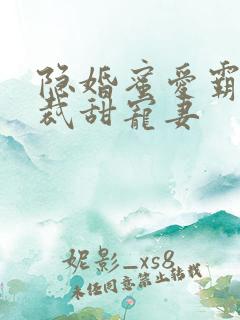 隐婚蜜爱霸
裁甜宠妻
妮影_xs8
未经同意禁止转载